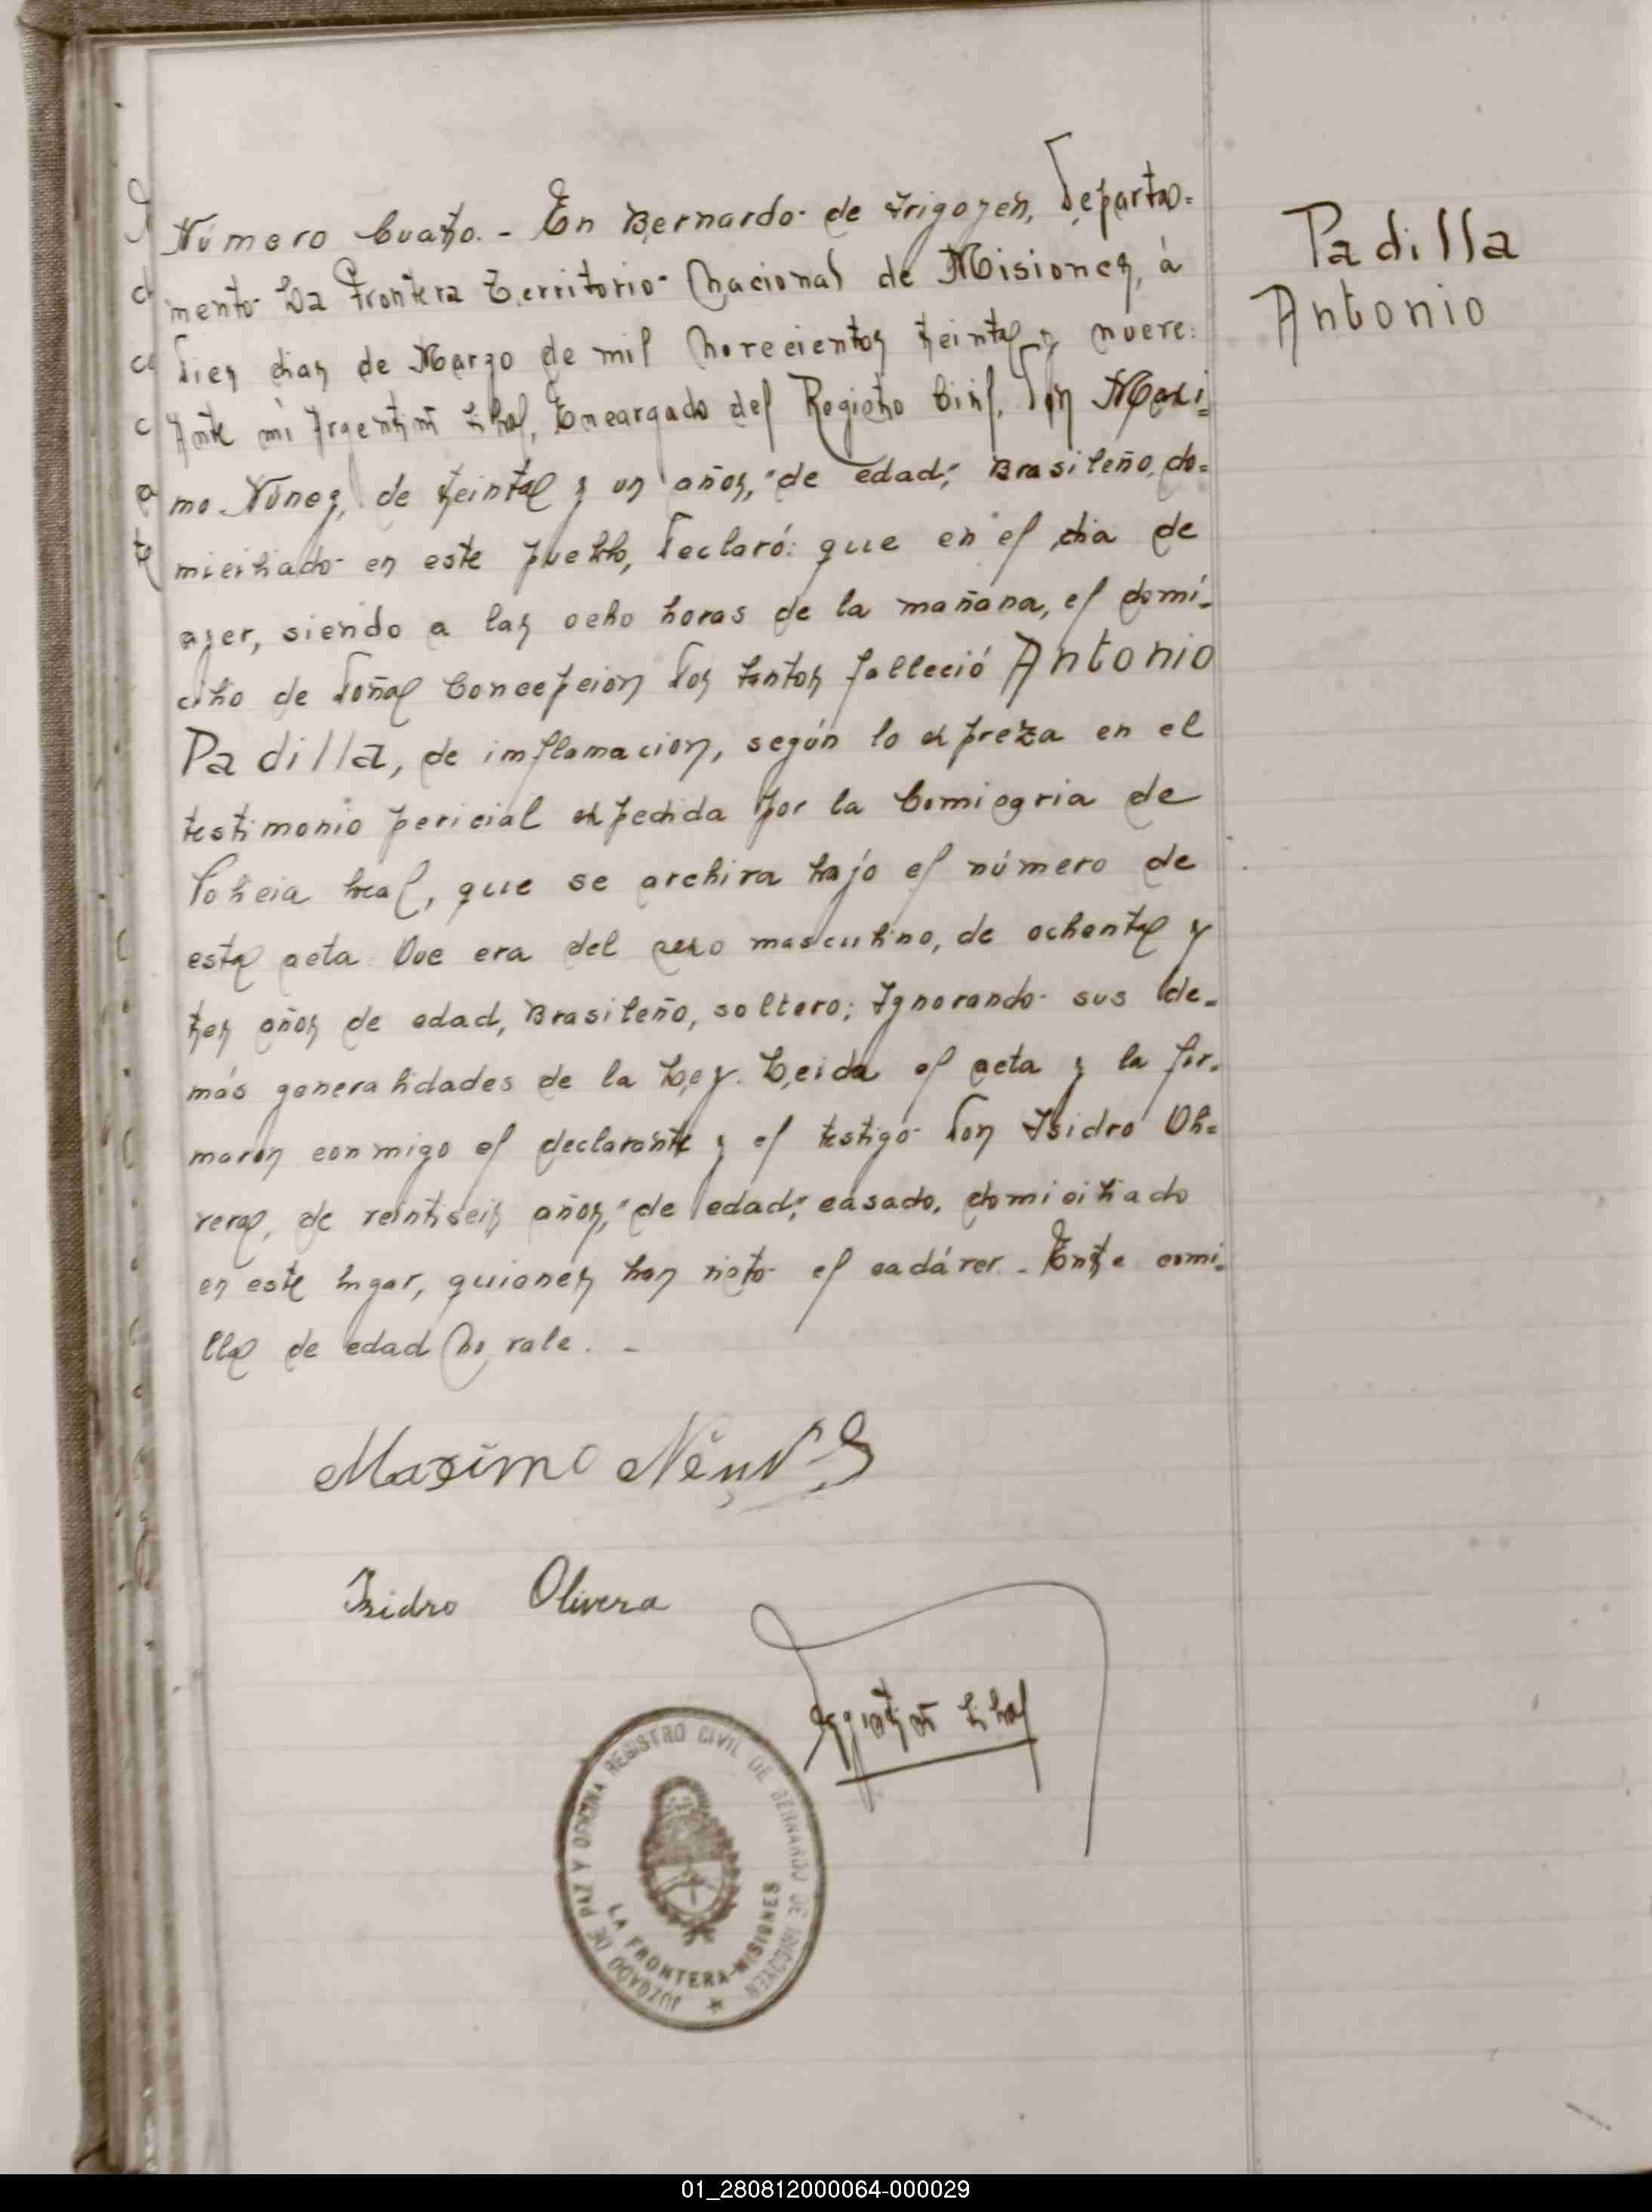 Número Cuatro. - En Bernardo de Irigoyen, Departa=
mento La Frontera Territorio Nacional de Misiones, á
diez dias de Marzo de mil novecientos treinta y nueve:
Ante mi Argentino Lihal, Encargado del Registro Civil, Don Maxi=
mo Núnez, de treinta y un años, "de edad;" Brasileño, do=
miciliado en este pueblo, declaró: que en el dia de
ayer, siendo a las ocho horas de la mañana, el domi-
cilio de doña Concepcion Dos Santos falleció Antonio
Padilla, de imflamacion, según lo expreza en el
testimonio pericial expedida por la Comisaria de
Policia local, que se archiva bajo el número de
esta acta Que era del sexo masculino, de ochenta y
tres años de edad, Brasileño, soltero; Ignorando sus de-
más generalidades de la Ley. Leida el acta y la fir-
maron conmigo el declarante y el testigo Don Isidro Oli=
vera, de veintiseis años, "de edad;" casado, domiciliado
en este lugar, quienes han visto el cadáver. - Entre comi-
lla de edad no vale. -
Padilla
Antonio
Maximo
Isidro Olivera
JUZGADO DE PAZ Y OFICINA REGISTRO CIVIL DE BERNARDO DE IRIGOYEN
LA FRONTERA-MISIONES
01_280812000064-000029